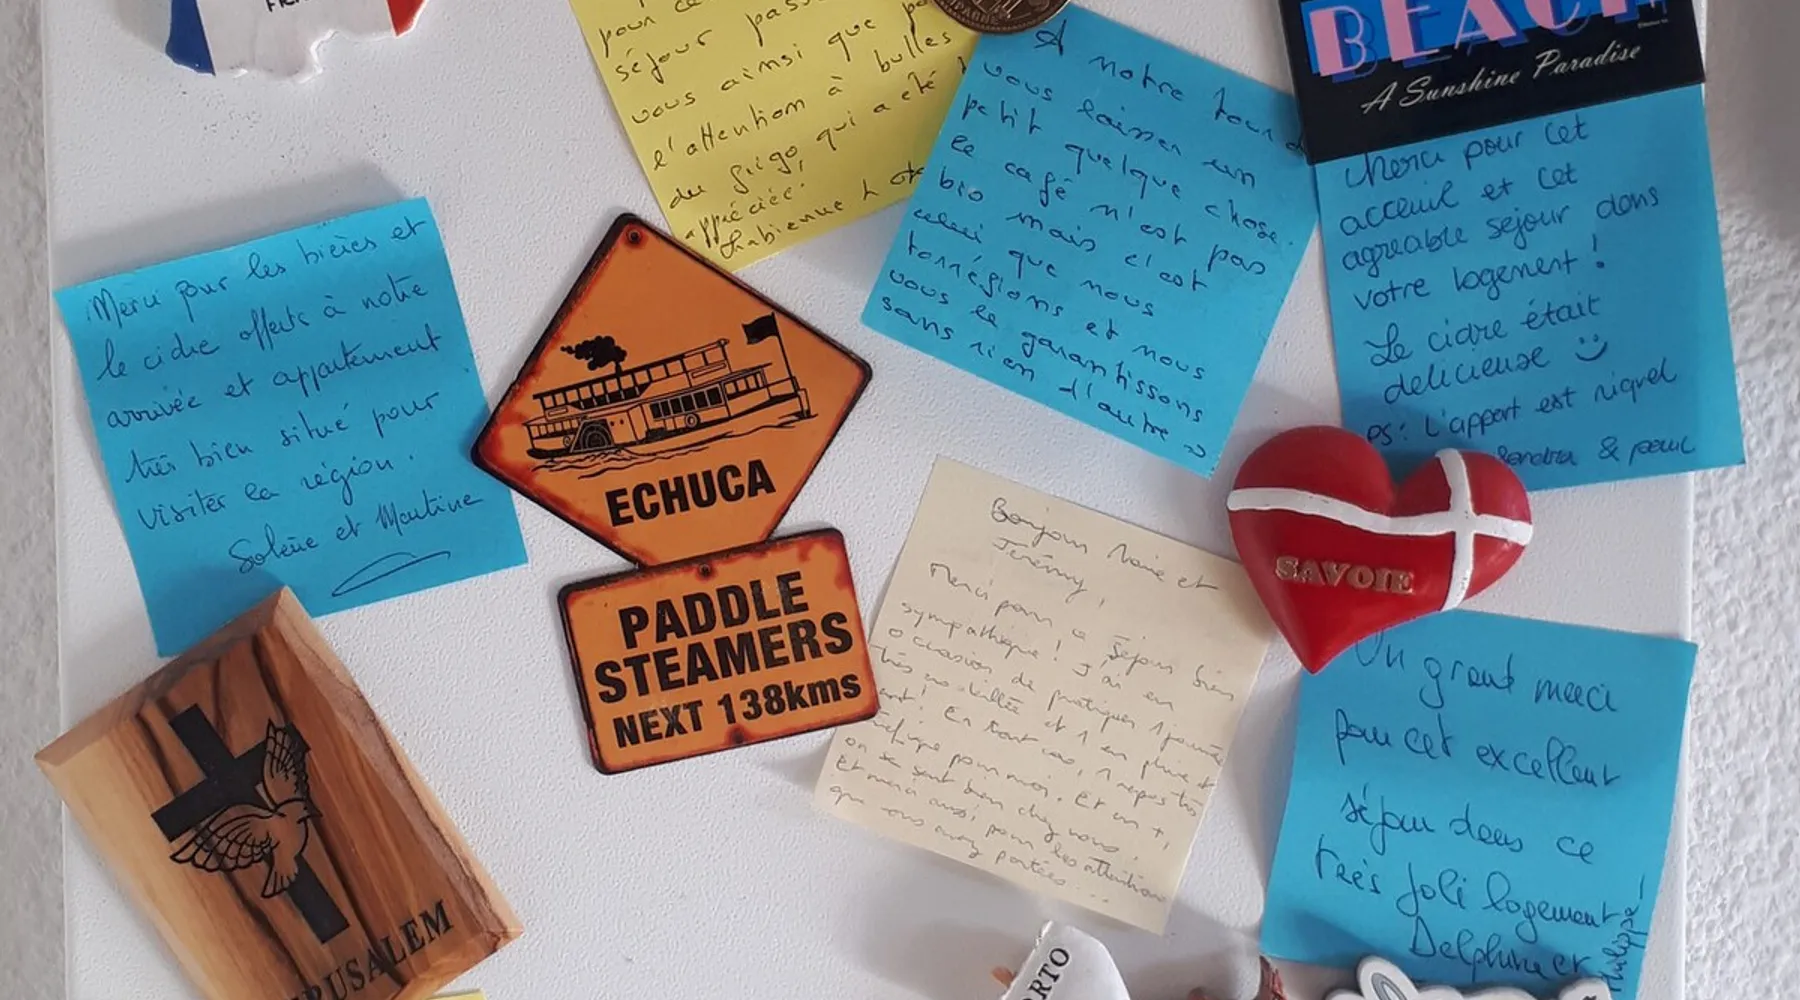 BEACH
A Sunshine Paradise
pour ce
séjour
vous ainsi que
l'attention à bulles
du frigo, qui a été
appréciée.
A notre tour
vous laisser un
petit quelque chose.
le café n'est pas
bio mais c'est
celui que nous
torréfions et nous
vous le garantissons
sans rien d'autre
Merci pour cet
acceuil et cet
agreable séjour dans
votre logement !
Le cidre était
delicieuse
ps: L'appart est niquel
Sandra & paul
Merci pour les bières et
le cidre offerts à notre
arrivée et appartement
très bien situé pour
visiter la région.
Solène et Martine
ECHUCA
PADDLE
STEAMERS
NEXT 138kms
Bonjour et
Jérémy,
Merci pour ce séjour bien
sympathique ! J'ai eu
occasion de pratiquer 1 journée
très ensoleillée et 1 en pluie et
vent! En tout cas, 1 repos très
bénéfique pour moi. Et en +,
on se sent bien chez vous.
Et merci aussi pour les attentions
que vous avez portées...
SAVOIE
Un grand merci
pour cet excellent
séjour dans ce
très joli logement
Delphine et
Philippe
JERUSALEM
PORTO